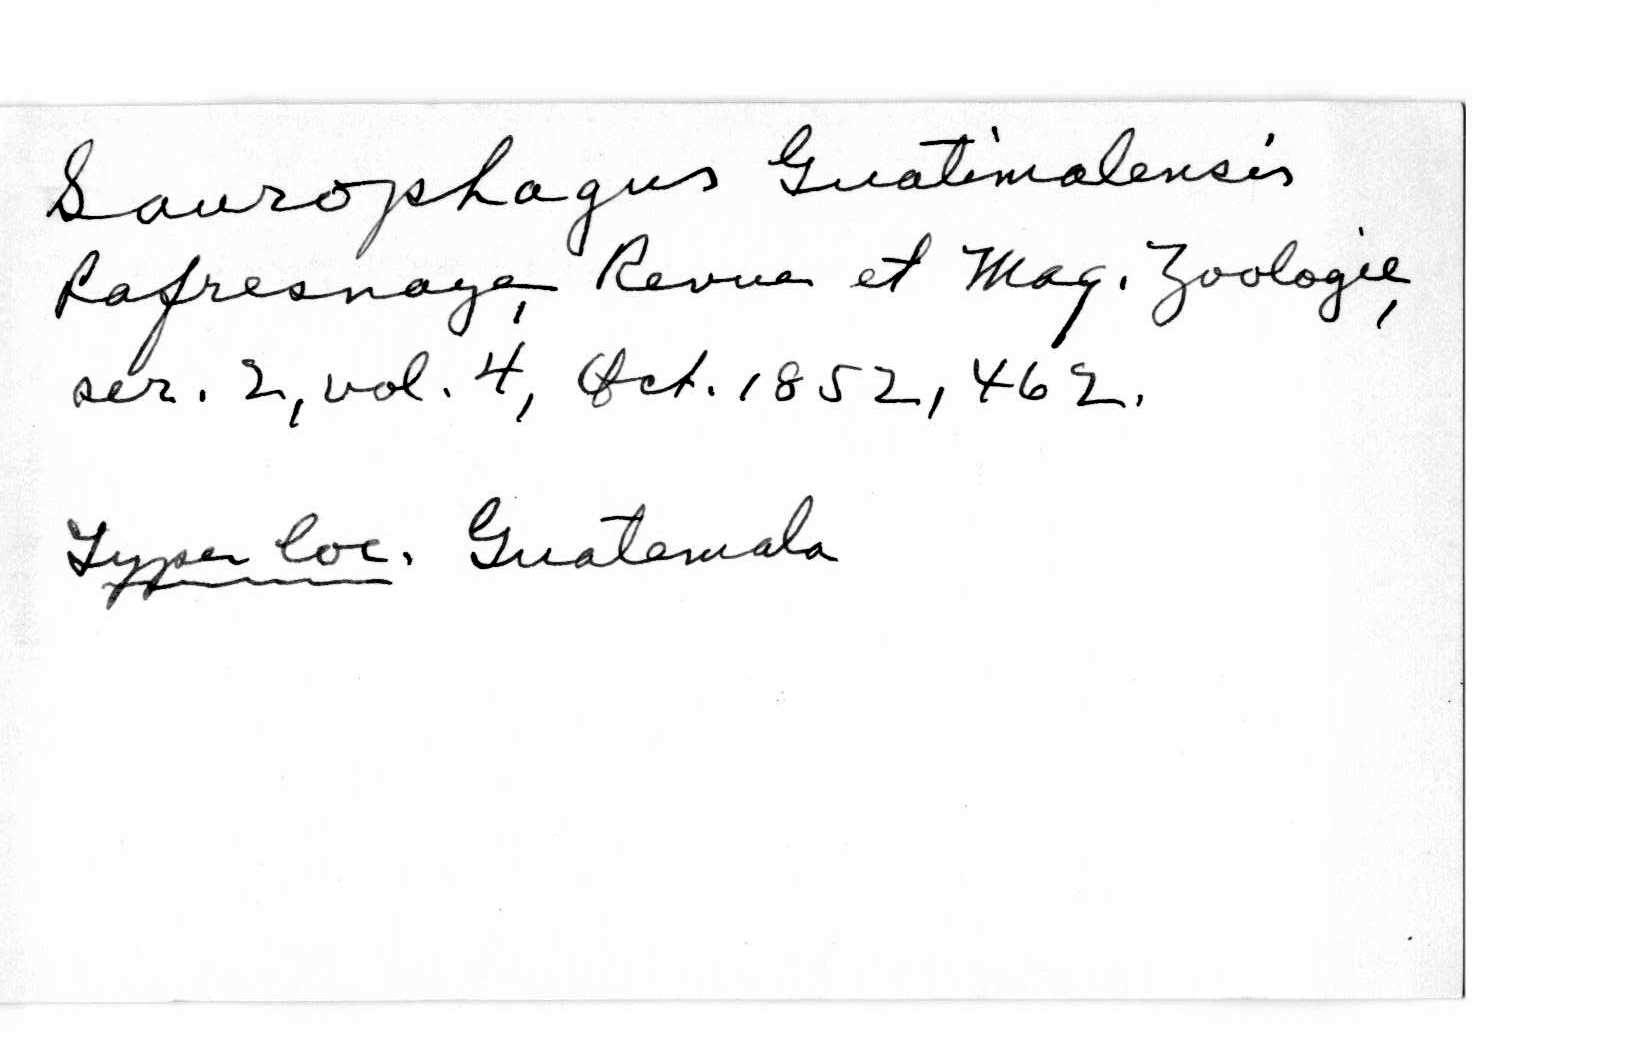 Saurophagus Guatimalensis
Lafresnaye, Revue et Mag. Zoologie,
ser. 2, vol. 4, Oct. 1852, 462.
Type loc. Guatemala